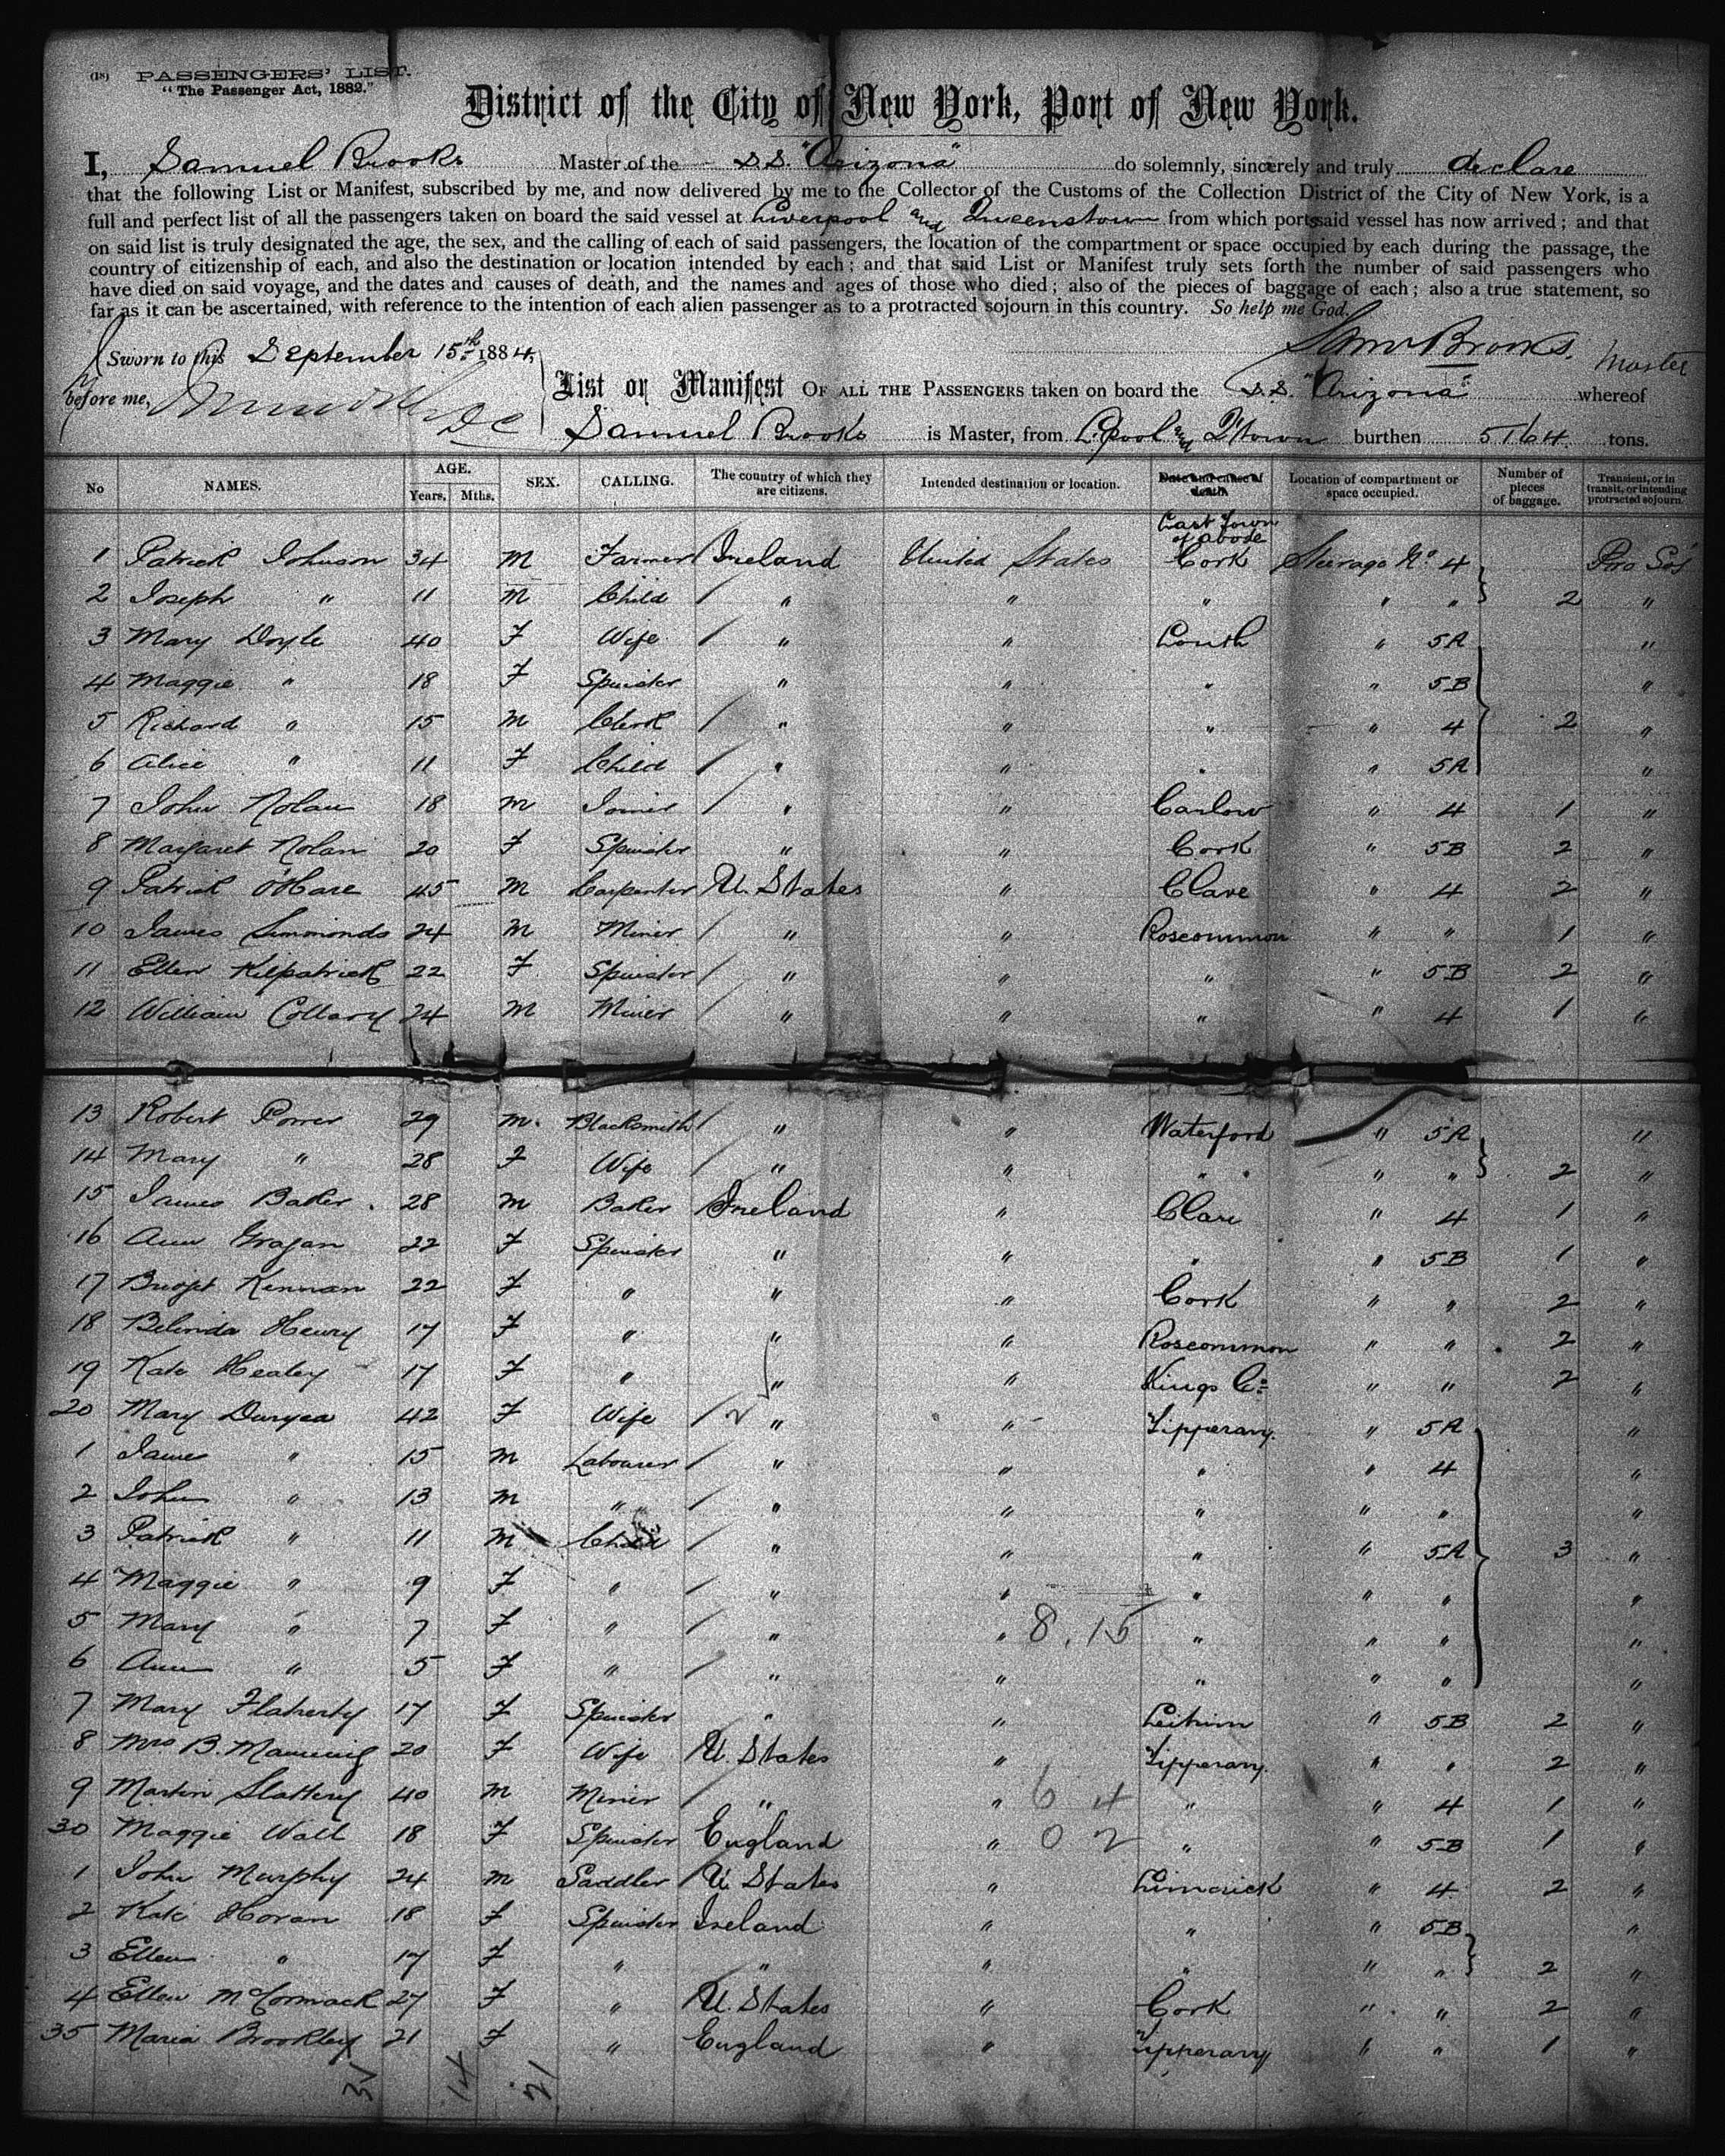 (18) PASSENGERS' LIST.
"The Passenger Act, 1882."
District of the City of New York, Port of New York.
I, Samuel Brooks Master of the S.S. "Arizona" do solemnly, sincerely and truly declare
that the following List or Manifest, subscribed by me, and now delivered by me to the Collector of the Customs of the Collection District of the City of New York, is a
full and perfect list of all the passengers taken on board the said vessel at Liverpool and Queenstown from which ports said vessel has now arrived; and that
on said list is truly designated the age, the sex, and the calling of each of said passengers, the location of the compartment or space occupied by each during the passage, the
country of citizenship of each, and also the destination or location intended by each; and that said List or Manifest truly sets forth the number of said passengers who
have died on said voyage, and the dates and causes of death, and the names and ages of those who died; also of the pieces of baggage of each; also a true statement, so
far as it can be ascertained, with reference to the intention of each alien passenger as to a protracted sojourn in this country. So help me God.
Sworn to this September 15th 1884, Saml Brooks. Master
before me,
List or Manifest OF ALL THE PASSENGERS taken on board the S.S. "Arizona" whereof
Samuel Brooks is Master, from L'pool and Q'town burthen 5164 tons.
No NAMES. AGE. Years, Mths. SEX. CALLING. The country of which they are citizens. Intended destination or location. Date and cause of death. Location of compartment or space occupied. Number of pieces of baggage. Transient, or in transit, or intending protracted sojourn.
Last Town of abode
1 Patrick Johnson 34 M Farmer Ireland United States Cork Steerage No 4 Pro Soj
2 Joseph " 11 M Child " " " " " 2 "
3 Mary Doyle 40 F Wife " " Louth " 5A "
4 Maggie " 18 F Spinster " " " " 5B "
5 Richard " 15 M Clerk " " " " 4 2 "
6 Alice " 11 F Child " " " " 5A "
7 John Nolan 18 M Joiner " " Carlow " 4 1 "
8 Margaret Nolan 20 F Spinster " " Cork " 5B 2 "
9 Patrick O'Hare 45 M Carpenter U. States " Clare " 4 2 "
10 James Simmonds 24 M Miner " " Roscommon " " 1 "
11 Ellen Kilpatrick 22 F Spinster " " " " 5B 2 "
12 William Collary 24 M Miner " " " " 4 1 "
13 Robert Power 29 M. Blacksmith " " Waterford " 5A "
14 Mary " 28 F Wife " " " " " 2 "
15 James Baker. 28 M Baker Ireland " Clare " 4 1 "
16 Ann Gragan 22 F Spinster " " " " 5B 1 "
17 Bridget Kennan 22 F " " " Cork " " 2 "
18 Belinda Henry 17 F " " " Roscommon " " 2 "
19 Kate Healey 17 F " " " Kings Co " " 2 "
20 Mary Duryea 42 F Wife " " Tipperary. " 5A "
1 James " 15 M Labourer " " " " 4 "
2 John " 13 M " " " " " " "
3 Patrick " 11 M Child " " " " 5A 3 "
4 Maggie " 9 F " " " " " " "
5 Mary " 7 F " " " 8.15 " " " "
6 Ann " 5 F " " " " " " "
7 Mary Flaherty 17 F Spinster " " Leitrim " 5B 2 "
8 Mrs B. Manning 20 F Wife U. States " Tipperary. " " 2 "
9 Martin Slattery 40 M Miner " " 6 4 " " 4 1 "
30 Maggie Wall 18 F Spinster England " 0 2 " " 5B 1 "
1 John Murphy 24 M Saddler U States " Limerick " 4 2 "
2 Kate Horan 18 F Spinster Ireland " " " 5B "
3 Ellen " 17 F " " " " " " 2 "
4 Ellen McCormack 27 F " U. States " Cork " " 2 "
35 Maria Brookley 21 F " England " Tipperary " " 1 "
14 21